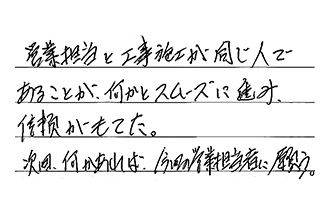 営業担当と工事施工が同じ人で
あることが、何かとスムーズに進み、
信頼がもてた。
次回、何かあれば、今回の営業担当者に願う。